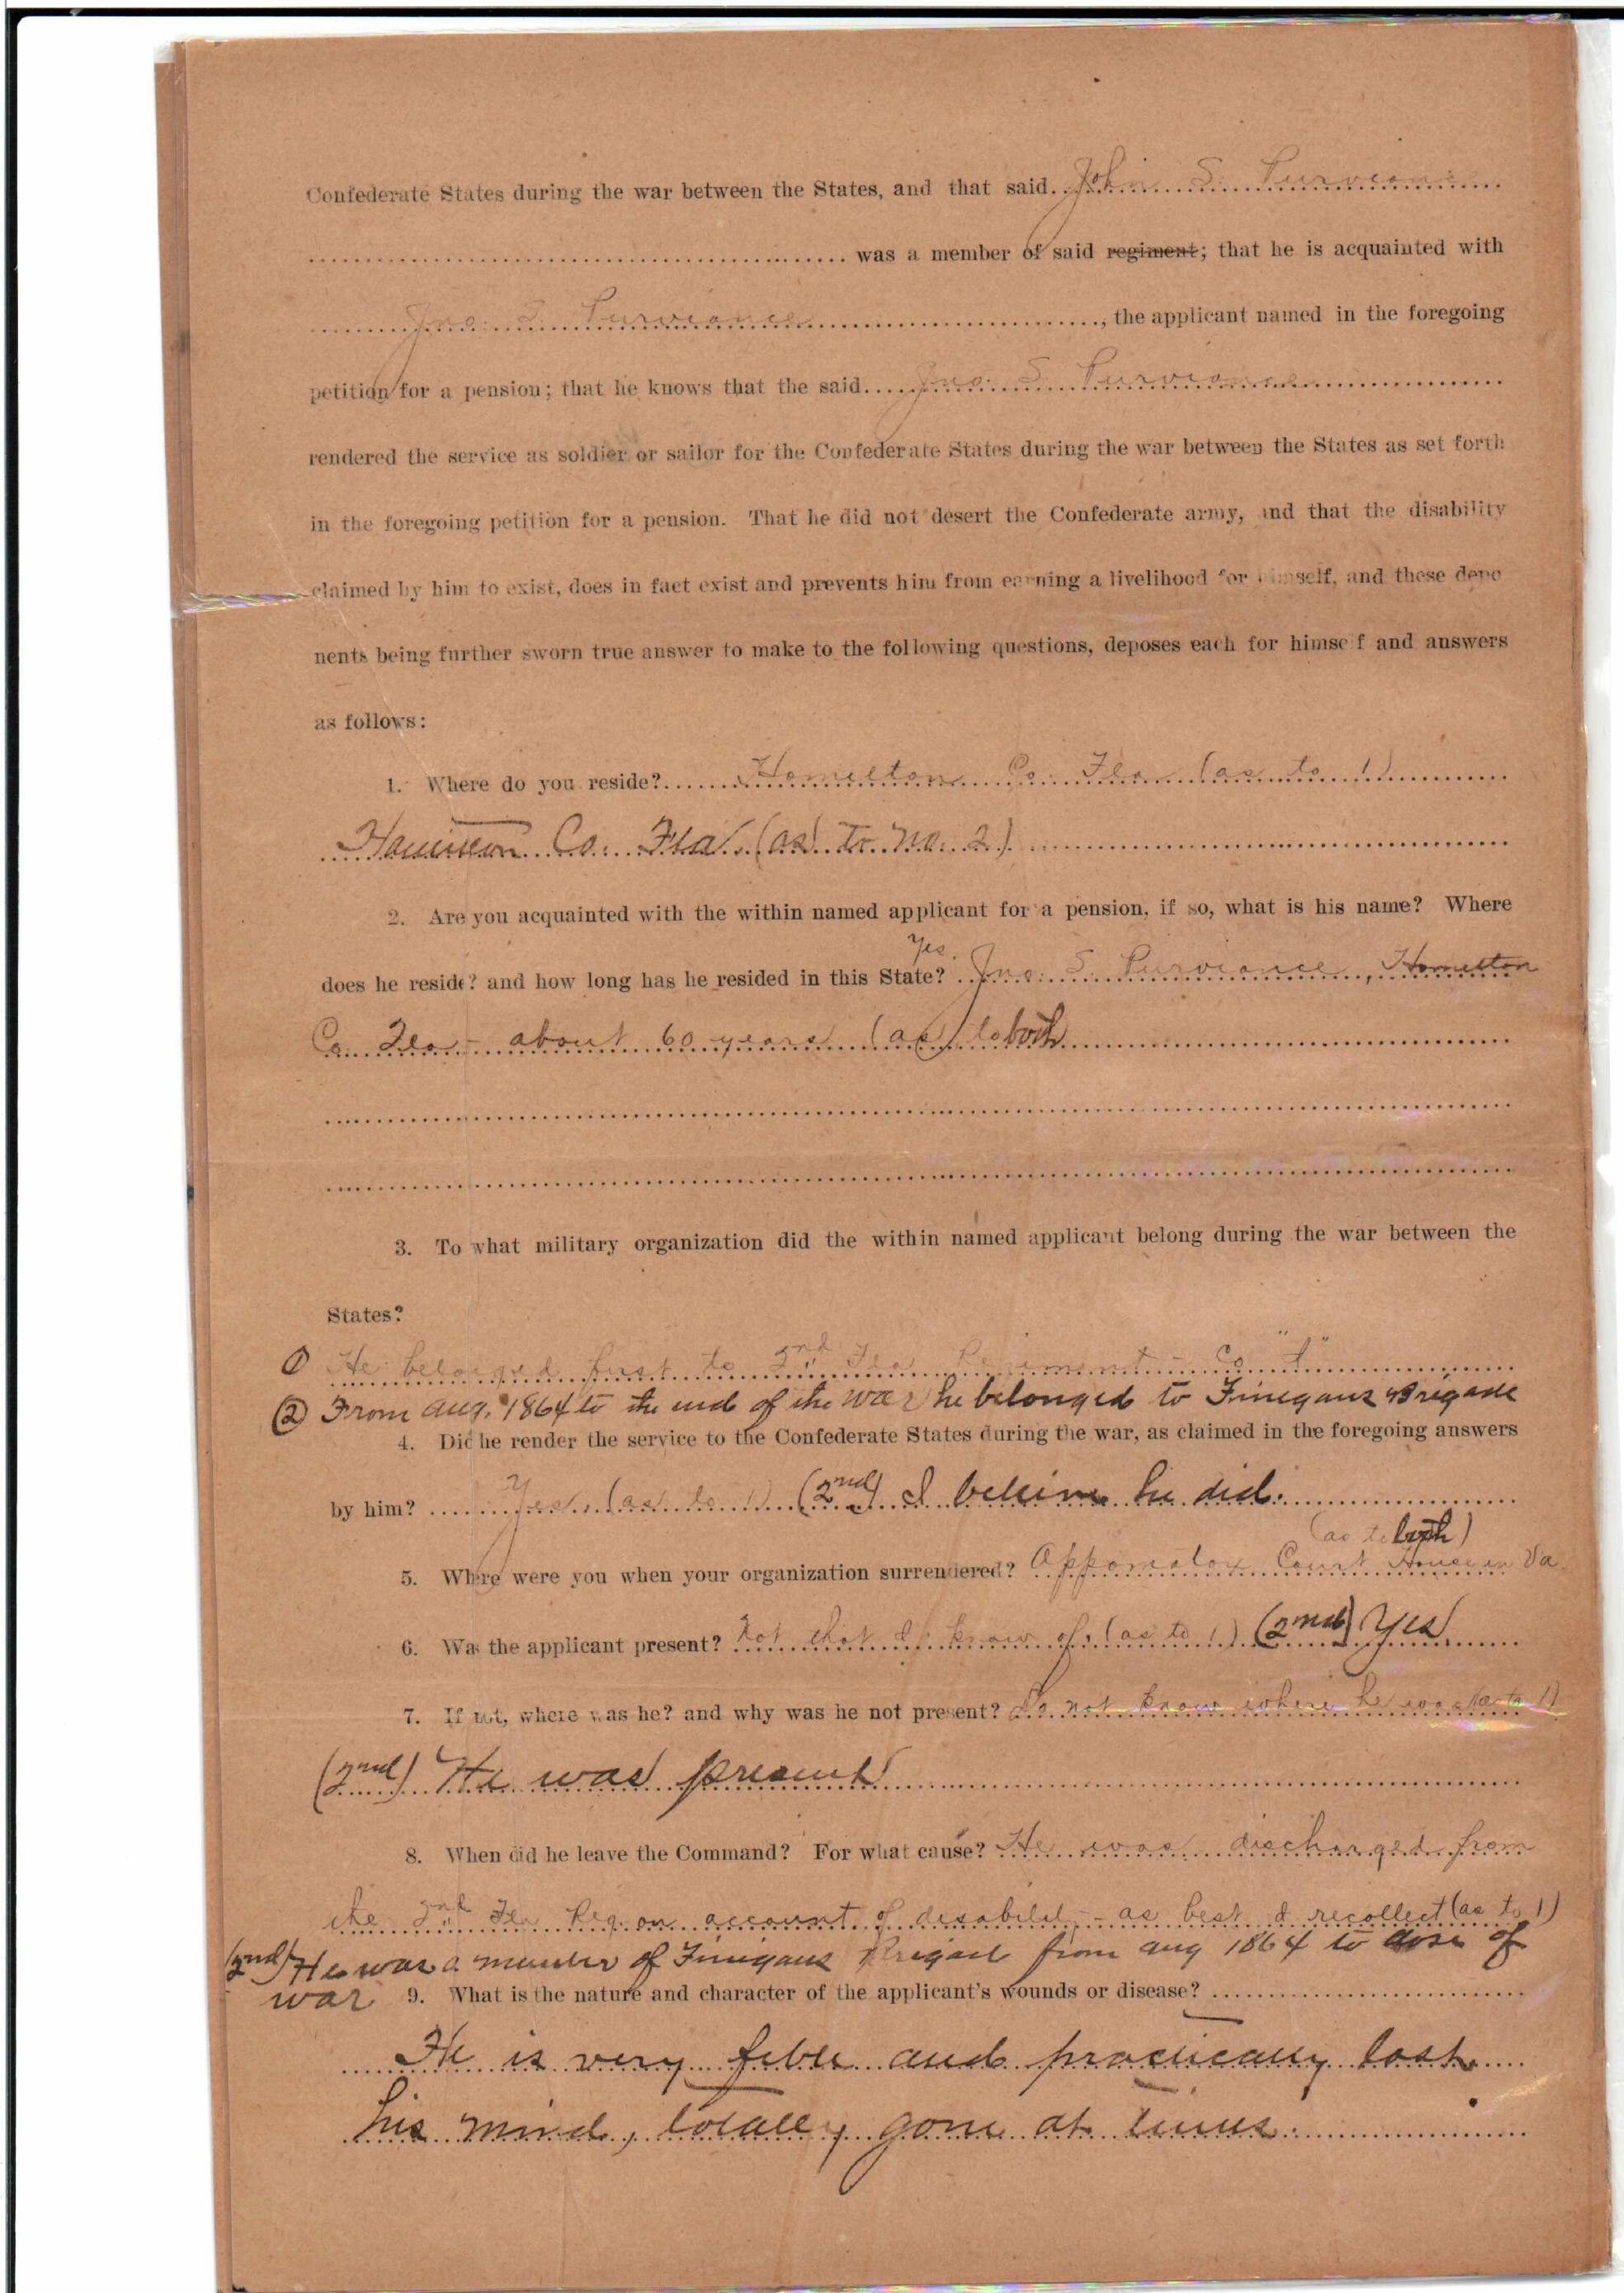 Confederate States during the war between the States, and that said John S. Purviance
was a member of said regiment; that he is acquainted with
Jno. S. Purviance, the applicant named in the foregoing
petition for a pension; that he knows that the said Jno. S. Purviance
rendered the service as soldier or sailor for the Confederate States during the war between the States as set forth
in the foregoing petition for a pension. That he did not desert the Confederate army, and that the disability
claimed by him to exist, does in fact exist and prevents him from earning a livelihood for himself, and these depo
nents being further sworn true answer to make to the following questions, deposes each for himself and answers
as follows:
1. Where do you reside? Hamilton Co. Fla (as to 1)
Hamilton Co. Fla. (as to no. 2)
2. Are you acquainted with the within named applicant for a pension, if so, what is his name? Where
Yes.
does he reside? and how long has he resided in this State? Jno. S. Purviance, Hamilton
Co. Fla - about 60 years (as to both
3. To what military organization did the within named applicant belong during the war between the
States?
① He belonged first to 2nd Fla Regiment - Co
② From Aug. 1864 to the end of the war he belonged to Finegans Brigade
4. Did he render the service to the Confederate States during the war, as claimed in the foregoing answers
by him? Yes (as to 1) (2nd) I believe he did.
(as to both)
5. Where were you when your organization surrendered? Appomatox Court House in Va
6. Was the applicant present? Not that I know of. (as to 1) (2nd) Yes
7. If not, where was he? and why was he not present? Do not know where he was (as to 1)
(2nd) He was present
8. When did he leave the Command? For what cause? He was discharged from
the 2nd Fla Reg. on account of disabilit - as best I recollect (as to 1)
(2nd) He was a member of Finigans Brigade from Aug 1864 to close of
war
9. What is the nature and character of the applicant's wounds or disease?
He is very feble and practically lost
his mind, totally gone at times.